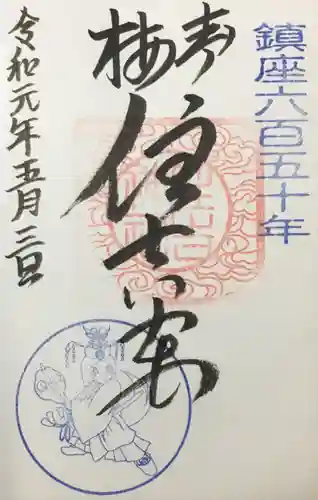 鎮座六百五十年
奉拝
住吉宮
令和元年五月三日